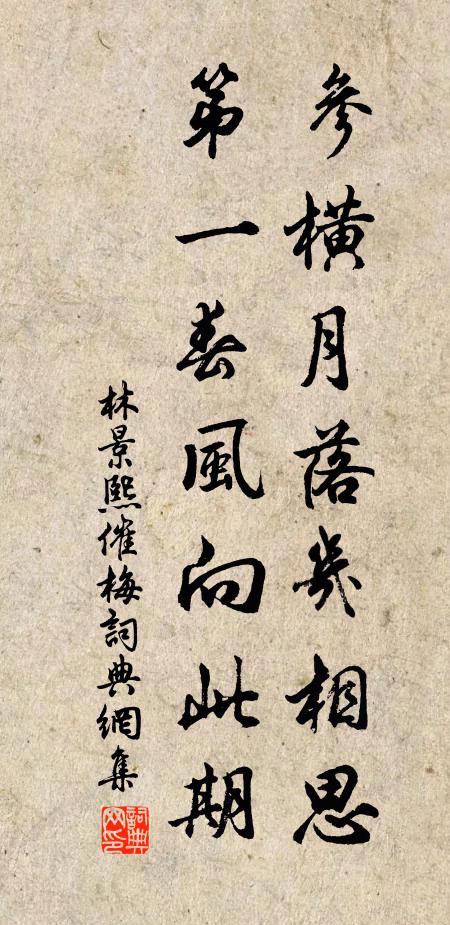 參橫月落幾相思
第一春風向此期
林景熙催梅詞典網集
詞典
网印